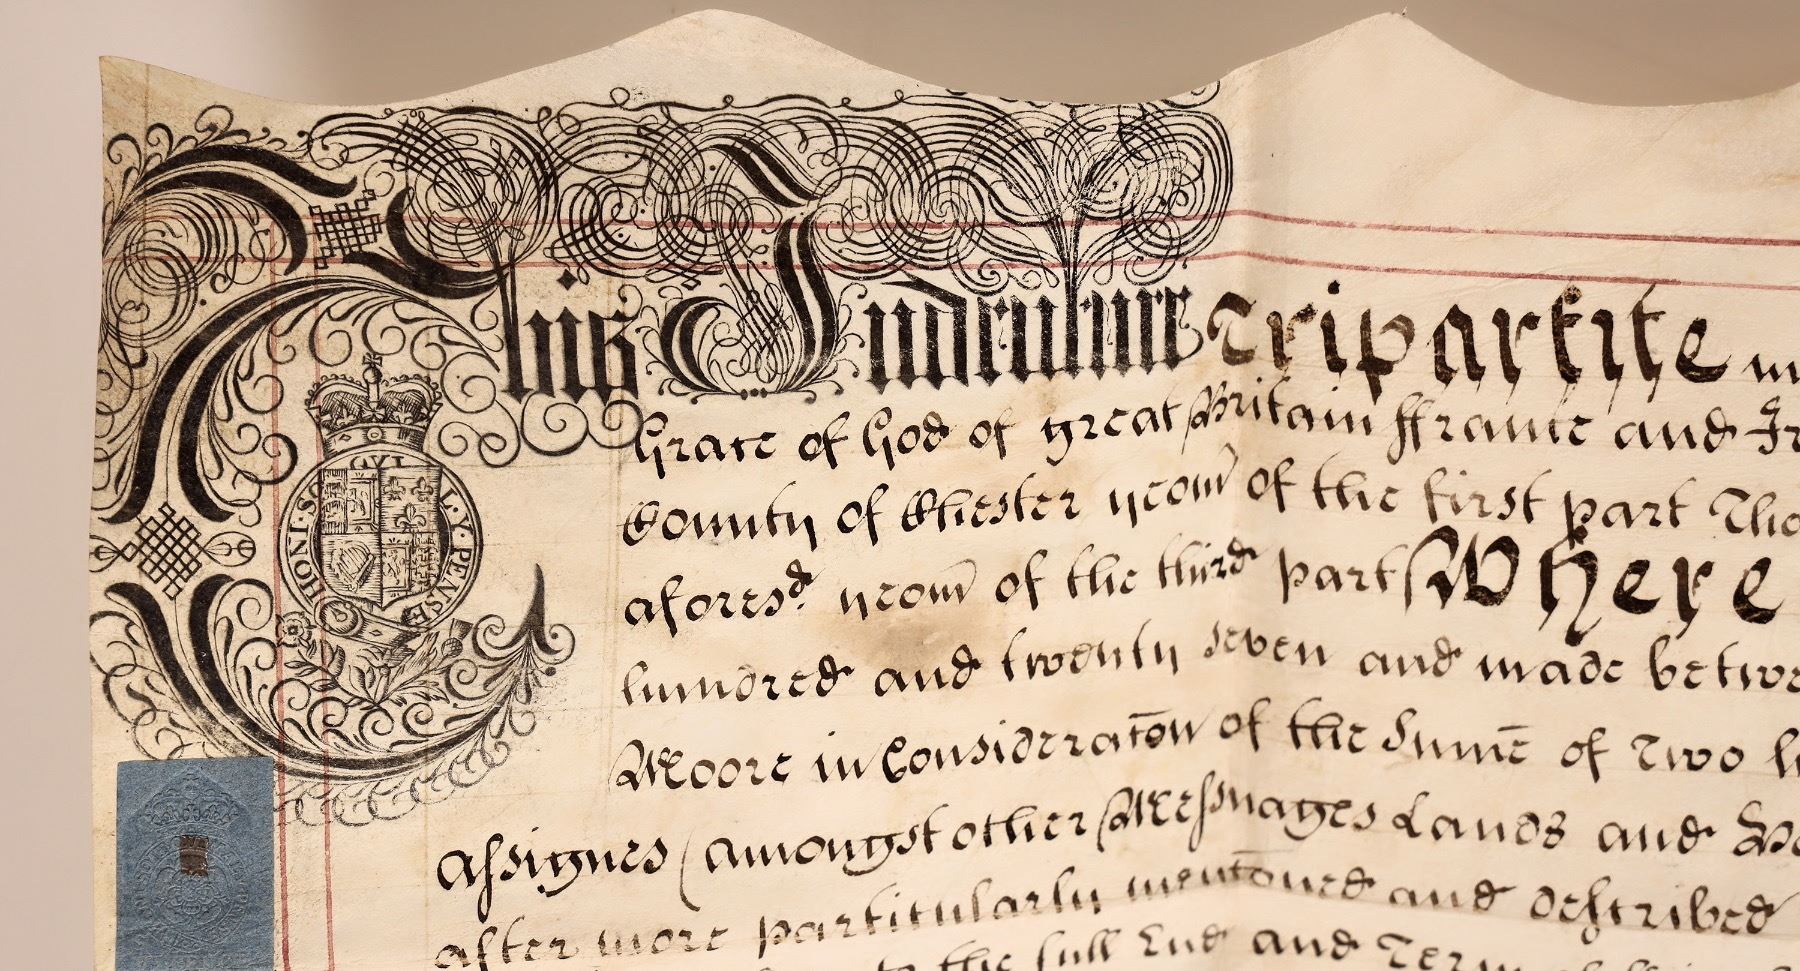 This Indenture Tripartite
Grace of God of great Britain ffrance and
HONI · SO QVI MAL · Y · PENSE
County of Chester yeom̅ of the first part
aforesd. yeom̅ of the third part Where
hundred and twenty seven and made betwe
Moore in Consideratōn of the Summē of Two
assignes (amongst other Messuages Lands and
after more particularly mentōned and described
the full End and Term